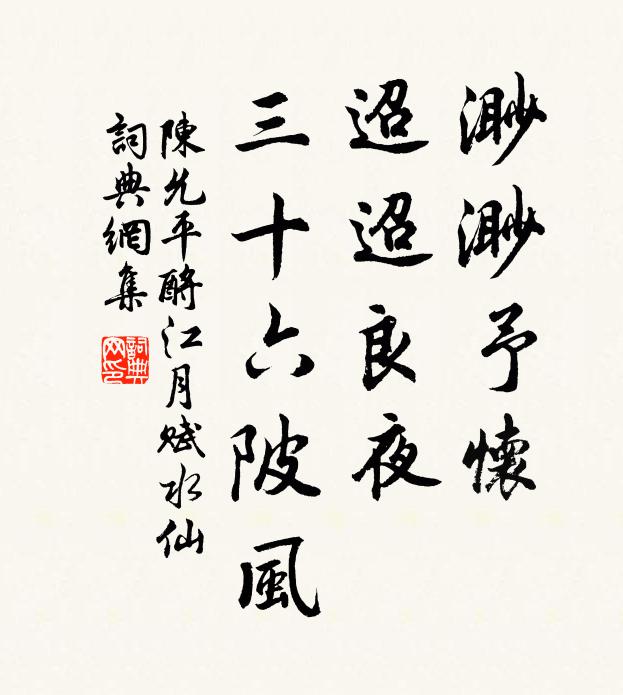 渺渺予懷
迢迢良夜
三十六陂風
陳允平酹江月賦水仙
詞典網集
詞典網印